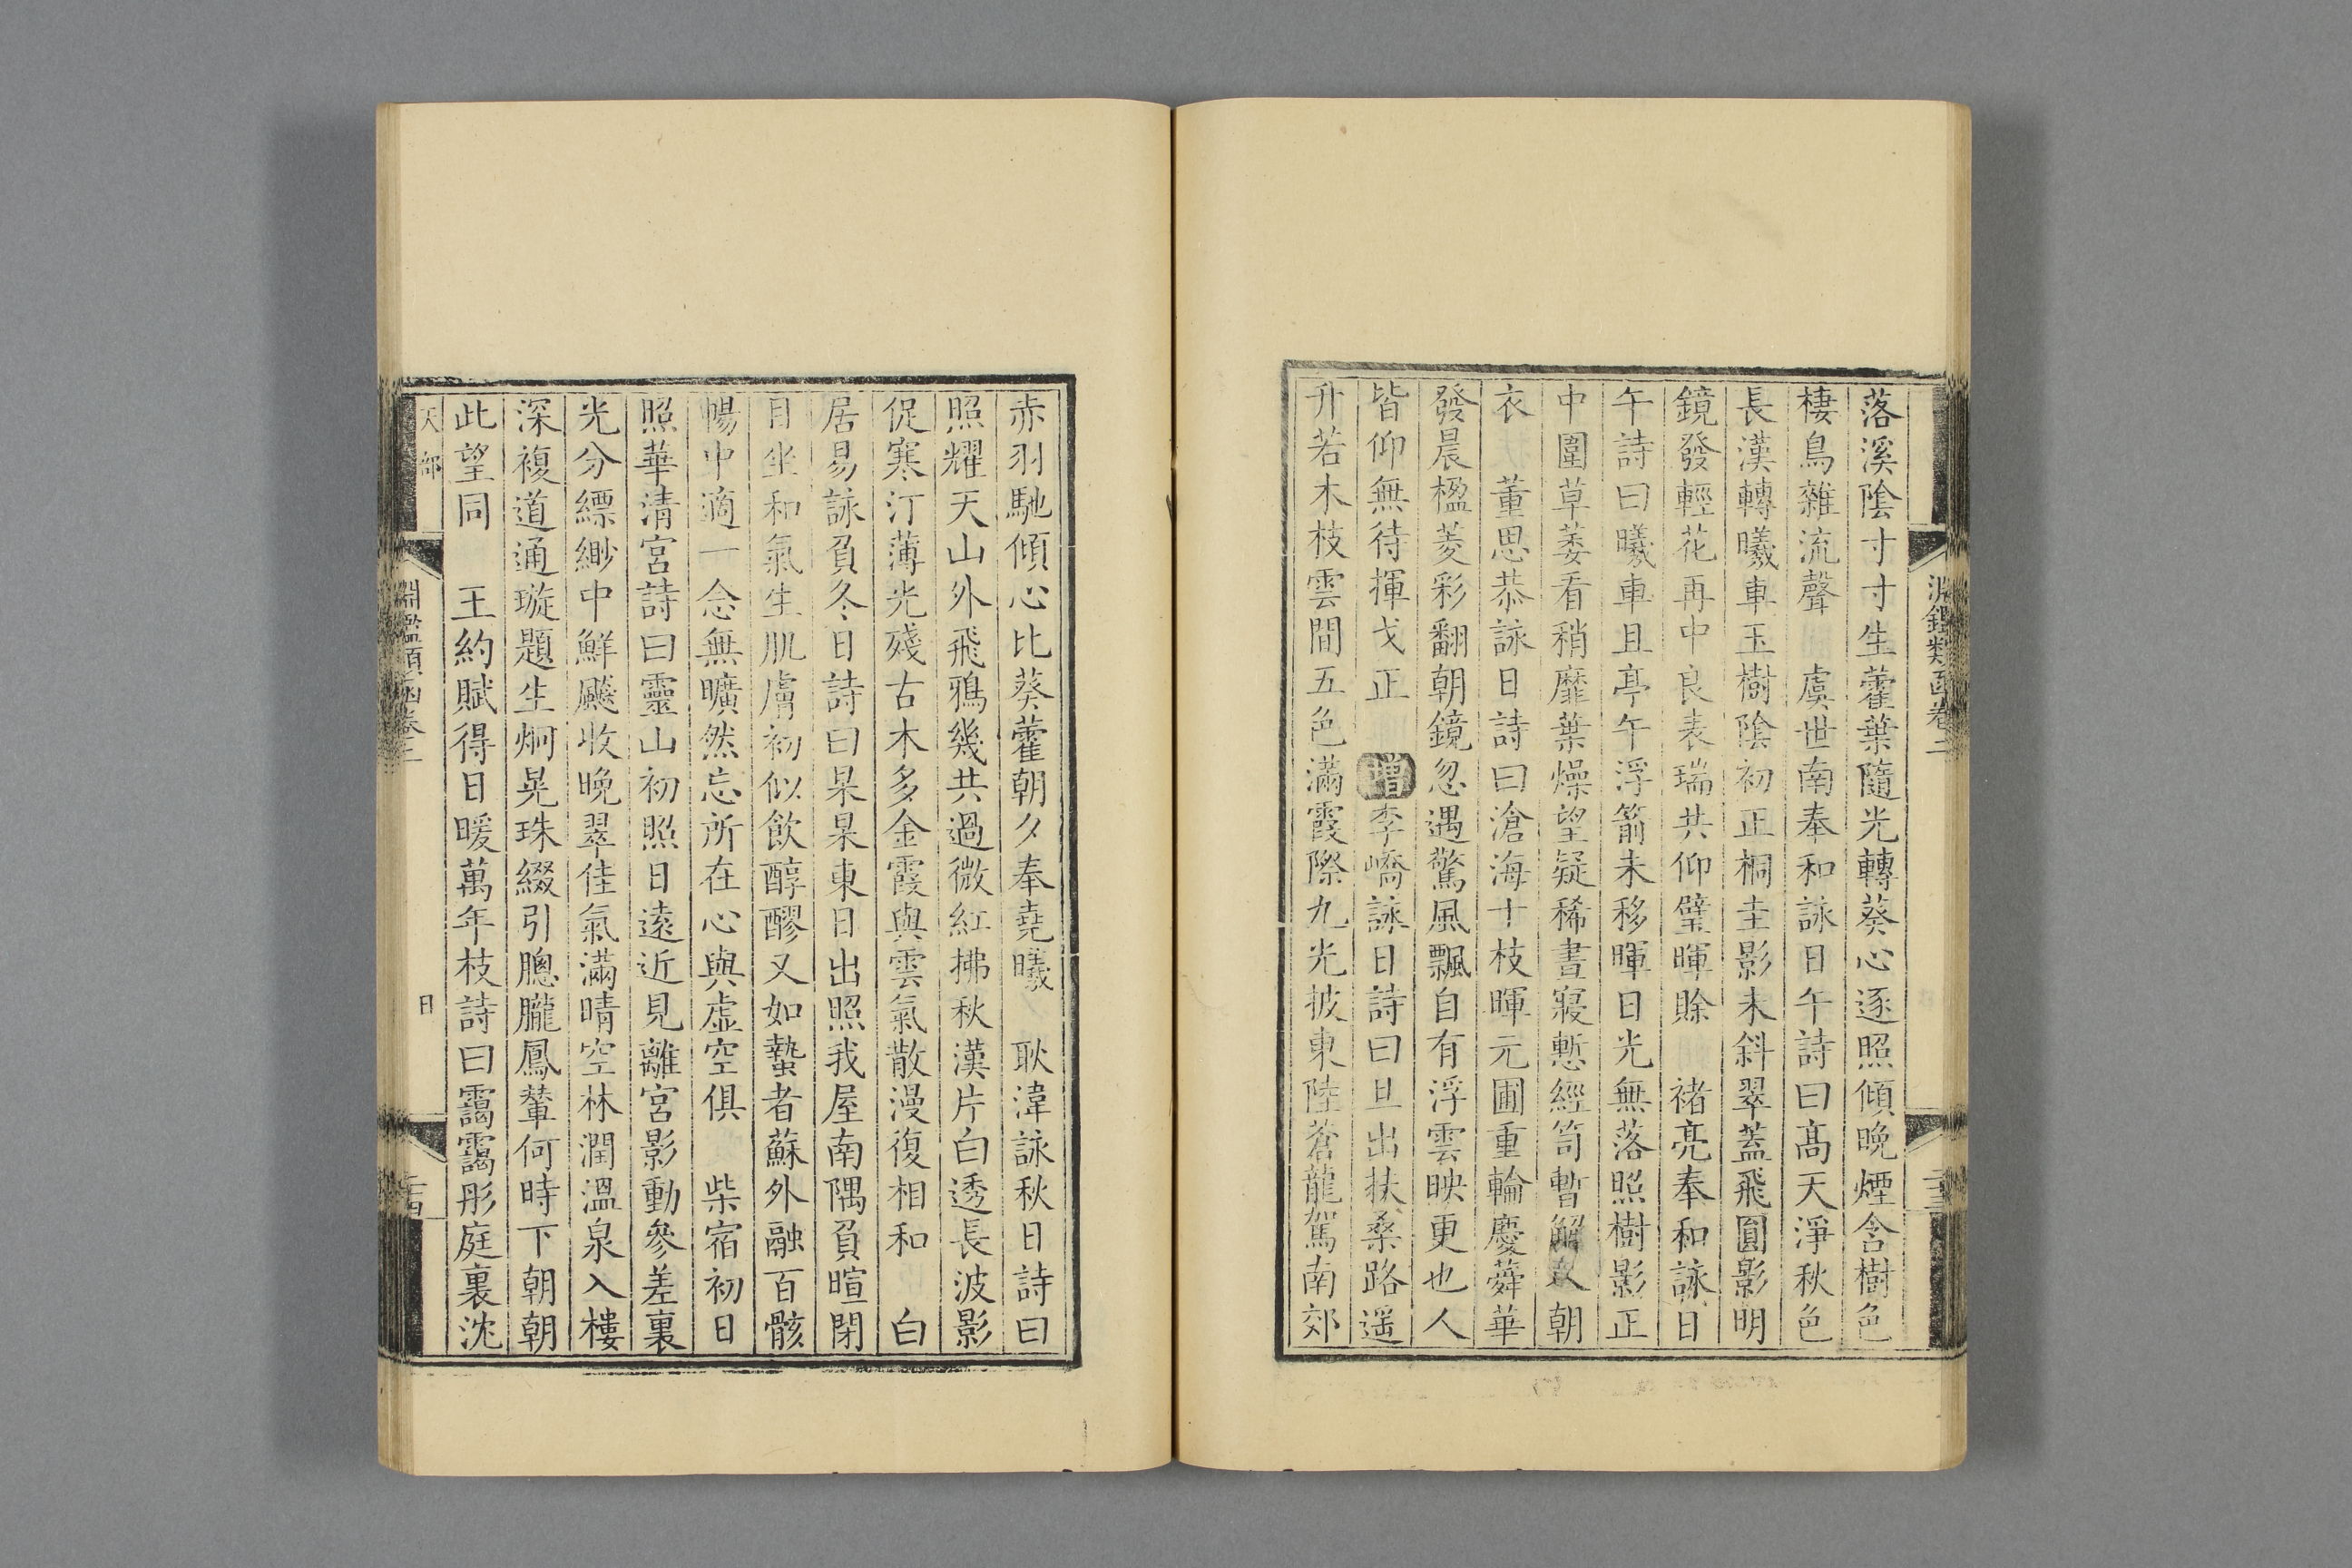 淵鑑類函卷二
落溪陰寸寸生藿葉隨光轉葵心逐照傾晚煙含樹色
棲鳥雜流聲　虞世南奉和詠日午詩曰高天淨秋色
長漢轉曦車玉樹陰初正桐圭影未斜翠蓋飛圓影明
鏡發輕花再中良表瑞共仰璧暉賒　褚亮奉和詠日
午詩曰曦車且亭午浮箭未移暉日光無落照樹影正
中圍草萎看稍靡葉燥望疑稀晝寢慙經笥暫解入朝
衣　董思恭詠日詩曰滄海十枝暉元圃重輪慶蕣華
發晨楹菱彩翻朝鏡忽遇驚風飄自有浮雲映更也人
皆仰無待揮戈正　增李嶠詠日詩曰旦出扶桑路遥
升若木枝雲間五色滿霞際九光披東陸蒼龍駕南郊
赤羽馳傾心比葵藿朝夕奉堯曦　耿湋詠秋日詩曰
照耀天山外飛鴉幾共過微紅拂秋漢片白透長波影
促寒汀薄光殘古木多金霞與雲氣散漫復相和　白
居易詠負冬日詩曰杲杲東日出照我屋南隅負暄閉
目坐和氣生肌膚初似飲醇醪又如蟄者蘇外融百骸
暢中適一念無曠然忘所在心與虛空俱　柴宿初日
照華清宮詩曰靈山初照日遠近見離宮影動參差裏
光分縹緲中鮮飈收晚翠佳氣滿晴空林潤溫泉入樓
深複道通璇題生炯晃珠綴引朧朧鳳輦何時下朝朝
此望同　王約賦得日暖萬年枝詩曰靄靄彤庭裏沈
天部
淵鑑類函卷二
日
二十四